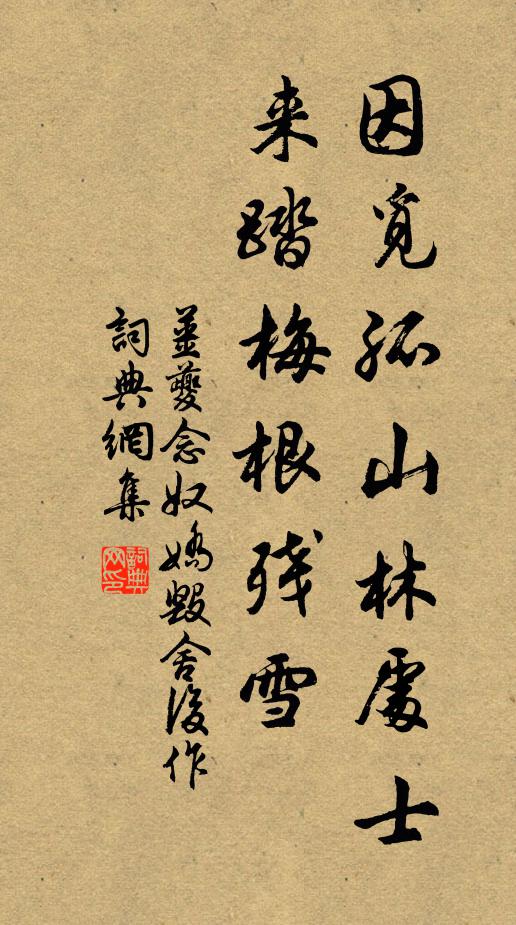 因觅孤山林處士
来踏梅根残雪
姜夔念奴嬌毀舍後作
詞典網集
詞典网印